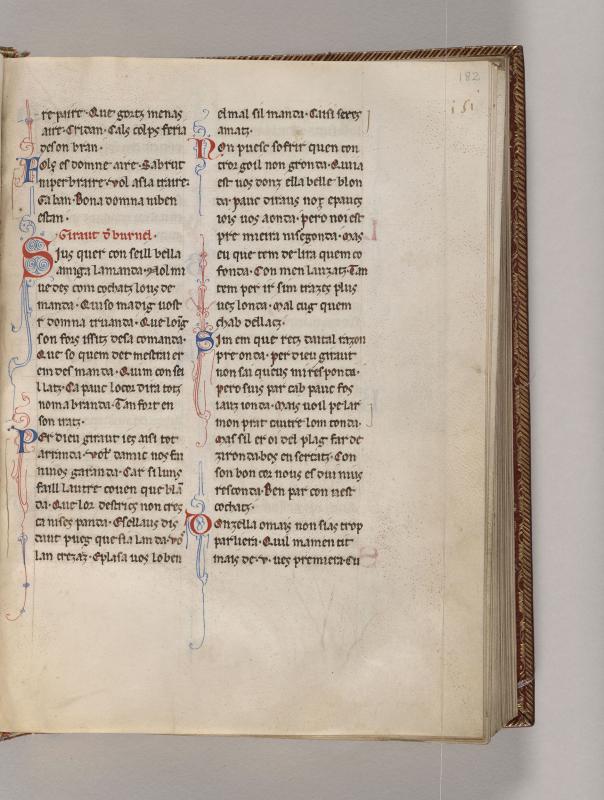 182
151
re paire. Que gortz menas
aire. Cridan. Cals colps feria
de son bran.
Fols es domne aire. Sabrut
niper braire. vol asia traire.
Ga ban. Bona domna niben
estan.
Giraut d burnel.
Sius quer conseill bella
amiga lamanda. Nol mi
uedes com cochatz lous de
manda. Quiso ma dig uost
r domna truanda. Que loīg
son fors issitz de sa comanda.
Que so quem det mestrai er
em des manda. Quim consei
llatz. Ca pauc locor dira totz
nom abranda. Tan fort en
son iratz.
Per dieu giraut ies aisi tot
arranda. vol damic nos fai
ninos garanda. Car si luns
faill lautre couen que blā
da. Que lor destrics non cres
ca nises panda. E sellaus dis
daut pueg que sia landa. vo
lan crezatz. E plasa uos lo ben
el mal sil manda. Caisi seretz
amatz.
Non puesc sofrir quen con
tror goil non gronda. Quia
est uos donz ella belle blon
da. pauc diraus notz epauc
iois uos aonda. pero noi est
pre mieira nisegonda. Mas
eu que tem de lira quem co
fonda. Con men lauzatz. Tan
tem per ir sim trazes plus
ues londa. Mal cug quem
chab dellatz.
Sim em que retz daital razon
preonda. per dieu giraut
non sai queus mi responda.
pero suis par cab pauc fos
iauzionda. Mais uoil pelar
mon prat cautre lom tonda.
Mas sil er oi del plag far de
zironda. bos en sercatz. Con
son bon cor nous es dui nius
resconda. Ben par con uest
cochatz.
Donzella omais non sias trop
parliera. Quil mamentit
mais de .v. ues premiera. Cu